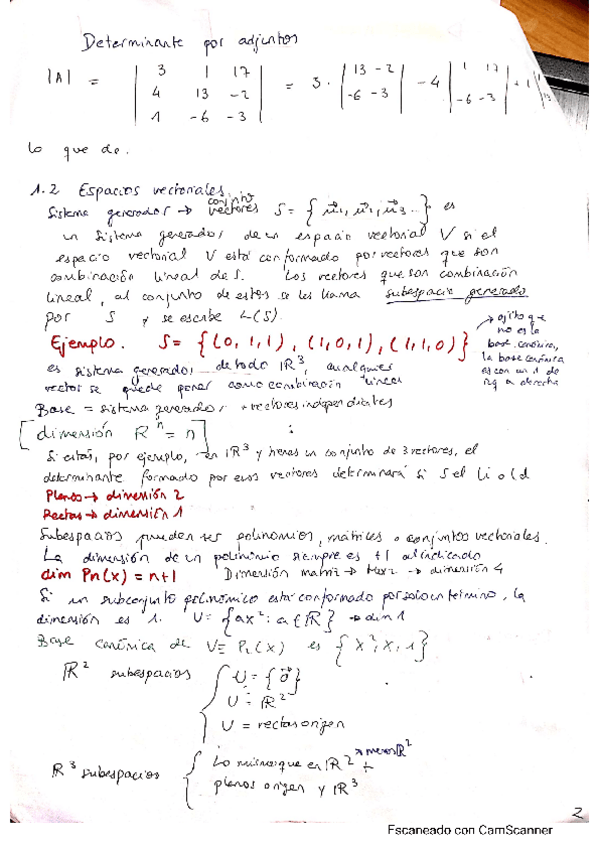 Determinante por adjuntos
|A| = | 3 1 17 | = 3 · | 13 -2 | - 4 | 1 17 | + 1
4 13 -2 | -6 -3 | | -6 -3 |
1 -6 -3
lo que de.
1.2 Espacios vectoriales
Sistema generador → conjunto vectores S = { u⃗1, u⃗2, u⃗3 .. } es
un sistema generador de un espacio vectorial V si el
espacio vectorial V está conformado por vectores que son
combinación lineal de S. Los vectores que son combinación
lineal, al conjunto de estos se les llama subespacio generado
por S y se escribe L(S).
Ejemplo. S = { (0, 1, 1), (1, 0, 1), (1, 1, 0) }
→ ojito que
no es la
base canónica,
la base canónica
es con un 1 de
izq a derecha
es sistema generador de todo ℝ³, cualquier
vector se puede poner como combinación lineal
Base = sistema generador + vectores independientes
[dimensión ℝⁿ = n]
Si estás, por ejemplo, en ℝ³ y tienes un conjunto de 3 vectores, el
determinante formado por esos vectores determinará si S el li o ld
Planos → dimensión 2
Rectas → dimensión 1
Subespacios pueden ser polinomios, matrices o conjuntos vectoriales.
La dimensión de un polinomio siempre es +1 al indicado
dim Pn(x) = n+1 Dimensión matriz → → dimensión 4
Si un subconjunto polinómico está conformado por solo un término, la
dimensión es 1. U = { ax² : a ∈ ℝ } → dim 1
Base canónica de V = P₂(x) es { x², x, 1 }
ℝ² subespacios { U = { 0⃗ }
U = ℝ²
U = rectas origen
ℝ³ subespacios { Lo mismo que en ℝ² * menos ℝ² +
planos origen y ℝ³
2
Escaneado con CamScanner